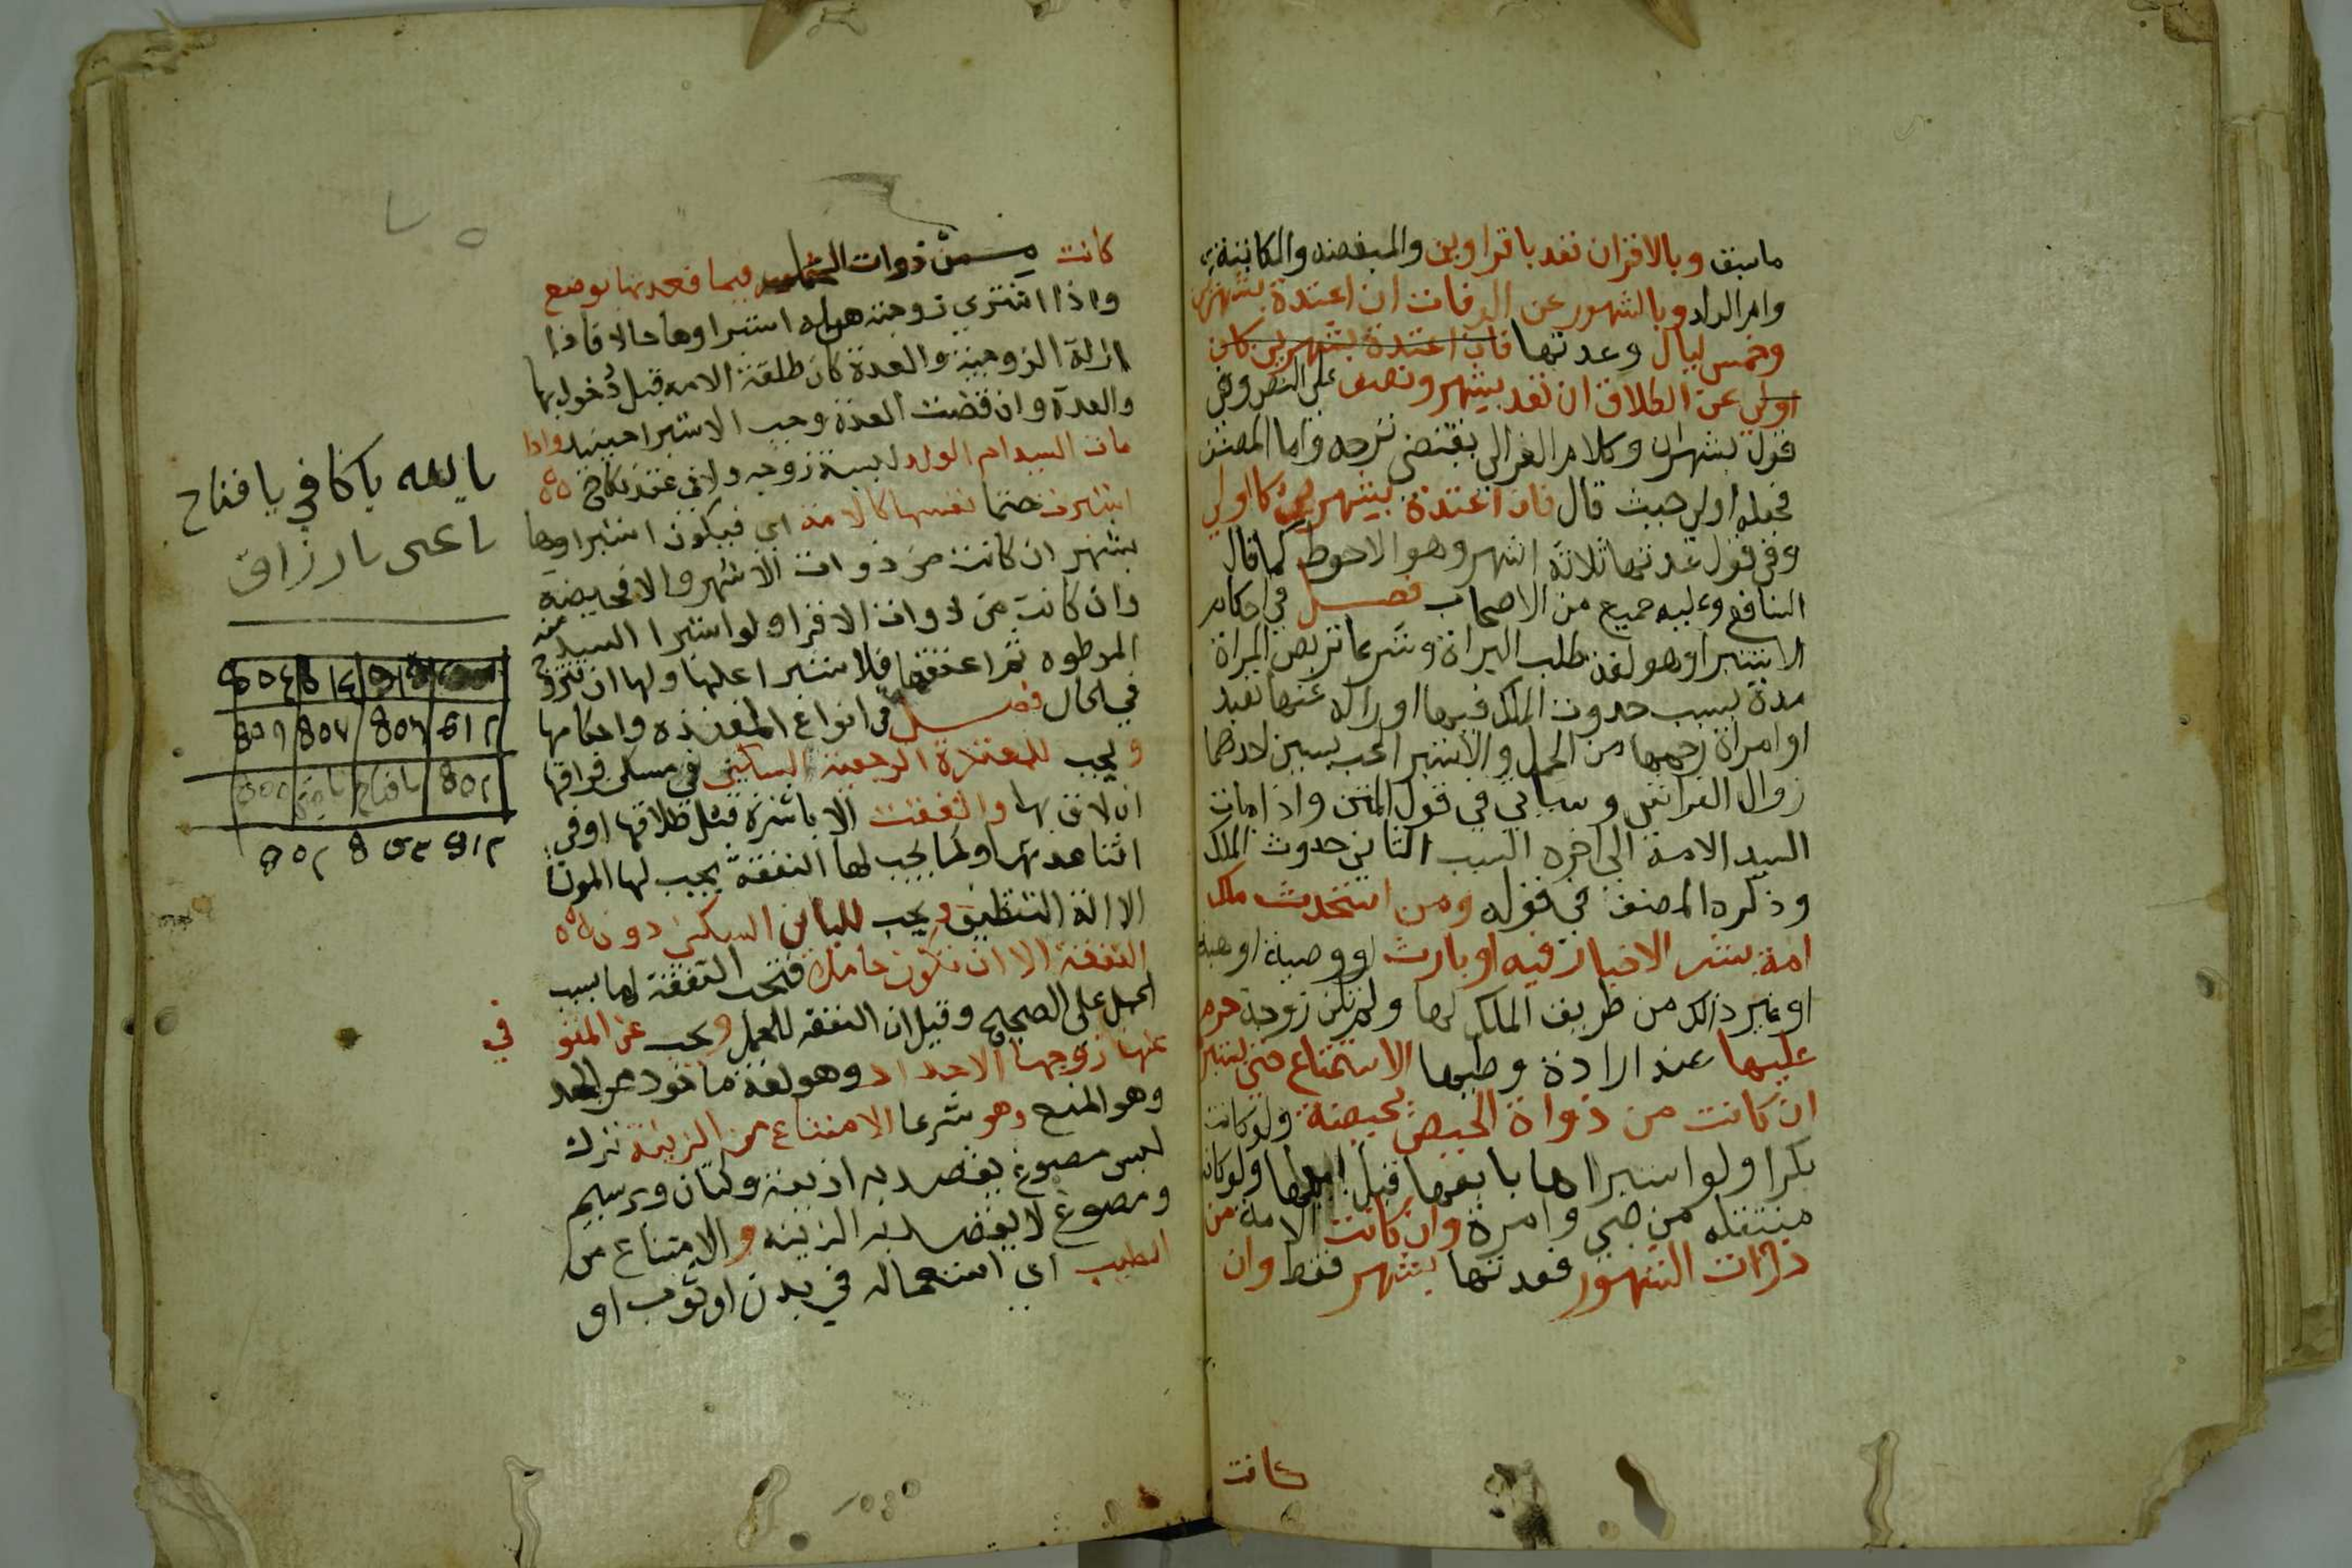 ماسبق وبالاقران تعد باقراوين والمبعضه والمكاتبة
وام الولد وبالشهور عن الوفات ان اعتدة بشهرين
وخمس ليال وعدتها فان اعتدة بشهرين كان
اولي عن الطلاق ان تعد بشهر ونصف على النص وفي
قول بشهران وكلام الغزالي يقتضي ترجحه واما المصنف
فجعله اولي حيث قال فان اعتدة بشهرين كا اولي
وفي قول عدتها ثلاثة اشهر وهو الاحوط كما قال
الشافع وعليه جميع من الاصحاب فصل في احكام
الاستبرا وهو لغة طلب البراة وشرعا تربص المراة
مدة بسبب حدوث الملك فيها او زاله عنها تعبد
او امراة رحمها من الحمل والاستبرا يجب بسببين احدهما
زوال الفراش وسياتي في قول المتن واذا مات
السيد الامة الى اخره السبب الثاني حدوث الملك
وذكره المصنف في قوله ومن استحدث ملك
امة بشر الاخيار فيه او بارث او وصية او هبة
او غير ذالك من طريق الملك لها ولم تكن زوجة حرم
عليها عند ارادة وطيها الاستمتاع حتى يستبر
ان كانت من ذواة الحيض بحيضة ولو كانت
بكرا ولو استبراها بايعها قبل بيعها ولو كانت
منتقله من صبي وامرة وان كانت الامة من
ذوات الشهور فعدتها بشهر فقط وان
كانت
كانت من ذوات فيما فعدتها بوضع
واذا اشتري زوجته استبراوها حالا فاذا
ازلة الزوجية والعدة كان طلقة الامه قبل دخول بها
والعدة وان قضت العدة وجب الاستبرا حينيد واذا
مات السيد ام الولد ليسة زوجه ولا في عدة نكاح
استبرت حتما نفسها كالامة اي فيكون استبراوها
بشهر ان كانت من ذوات الاشهر والا فحيضة
وان كانت من ذوات الاقرا ولو استبرا السيد امته
الموطوه ثم اعتقها فلا ستبرا عليها ولها ان تتزوج
في الحال فصل في انواع المعتده واحكامها
ويجب للمعتدة الرجعية السكني في مسكن فراقها
ان لاق بها والنفقت الا ناشزة قبل طلاقها او في
اثنا عدتها وكما يجب لها النفقة يجب لها المون
الا الة التنظيف ويجب للباين السكني دون
النفقة الا ان تكون حاملا فتجب النفقة لها بسبب
الحمل على الصحيح وقيل ان النفقه للحمل ويجب عن المتو في
عنها زوجها الاحداد وهو لغة ماخود من الحد
وهو المنع وهو شرعا الامتناع من الزينة ترك
لبس مصبوغ يقصد به ازينة وكتان وبرسيم
ومصبوغ لا يقصد به الزينه والامتناع من
الطيب اي استعماله في بدن او ثوب او
يالله ياكافي يافتاح
ياغني يارزاق